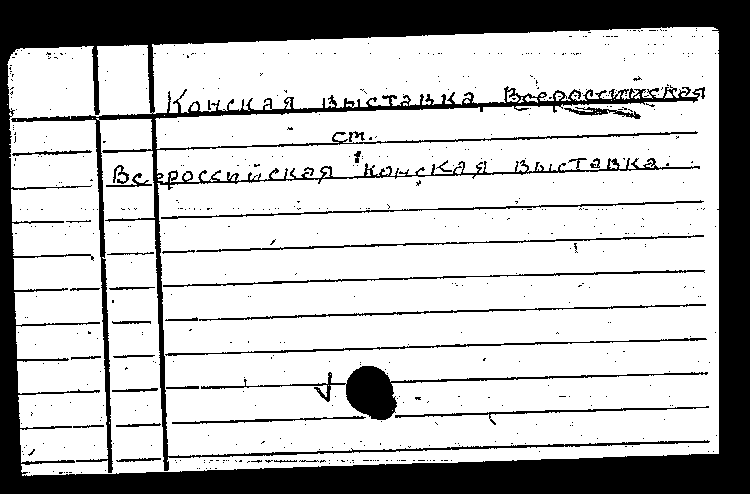 Конская выставка, Всероссийская
ст.
Всероссийская конская выставка.